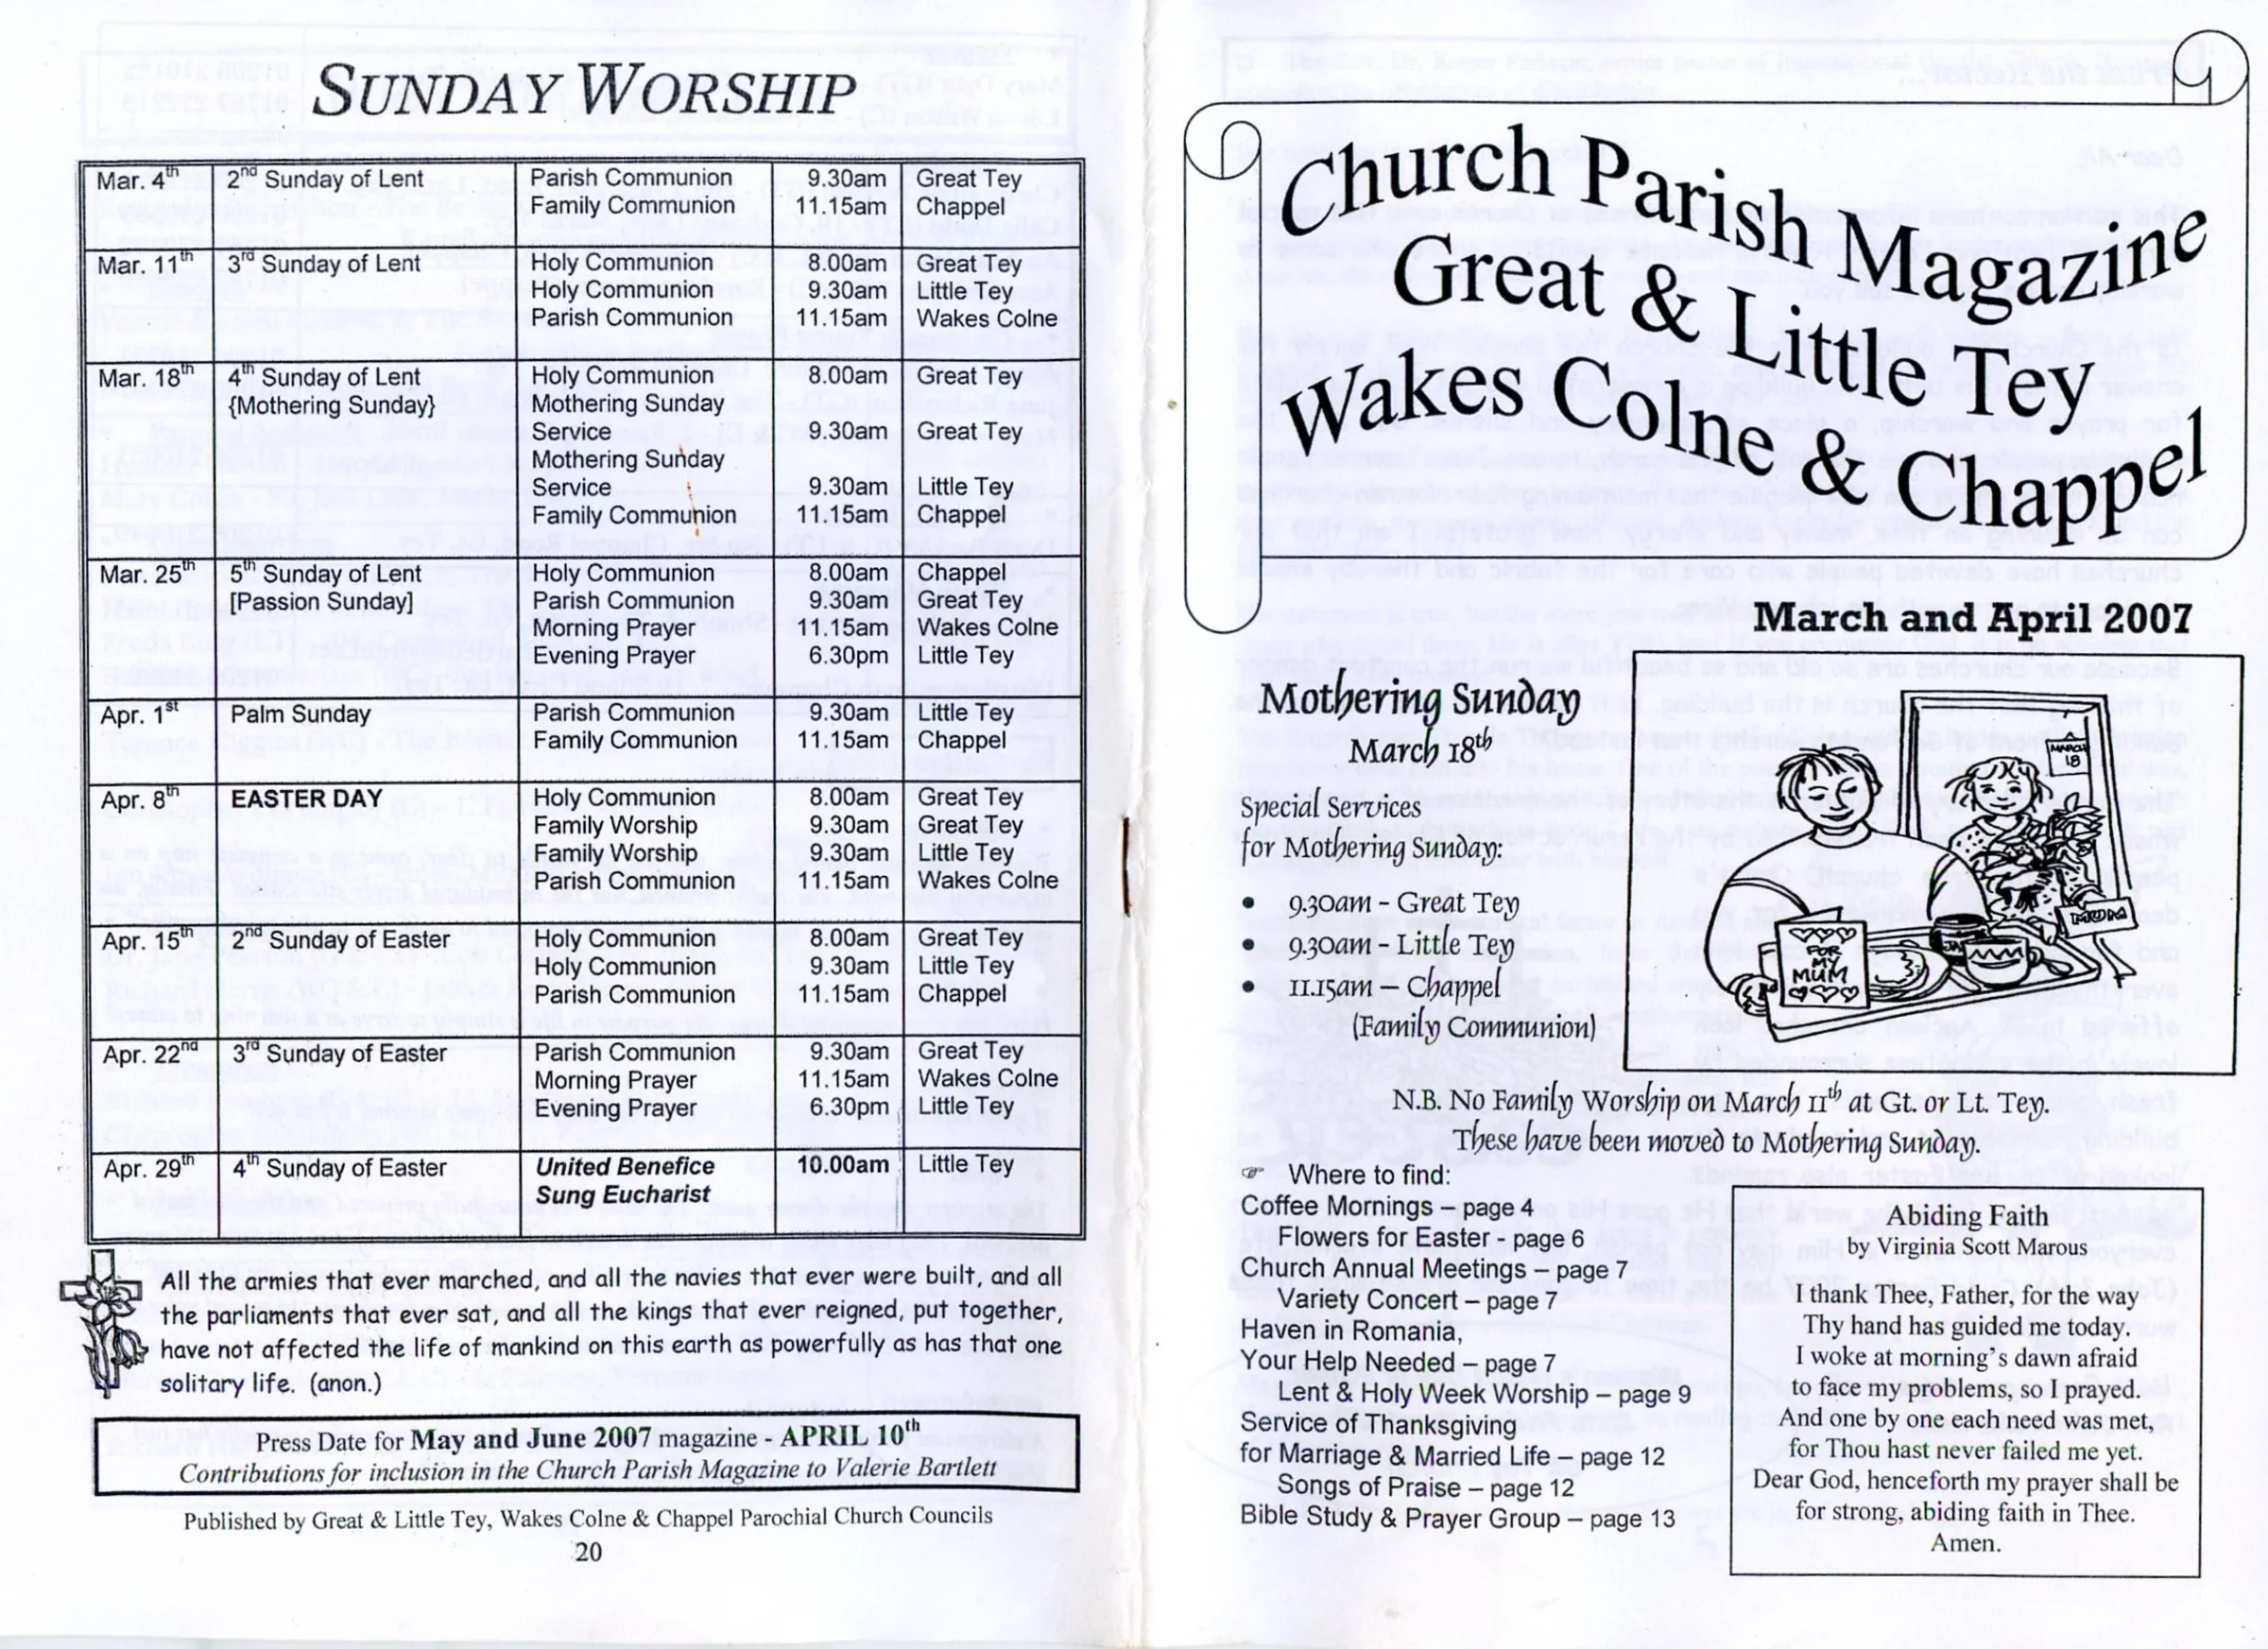 SUNDAY WORSHIP
Mar. 4th 2nd Sunday of Lent Parish Communion 9.30am Great Tey
Family Communion 11.15am Chappel
Mar. 11th 3rd Sunday of Lent Holy Communion 8.00am Great Tey
Holy Communion 9.30am Little Tey
Parish Communion 11.15am Wakes Colne
Mar. 18th 4th Sunday of Lent Holy Communion 8.00am Great Tey
{Mothering Sunday} Mothering Sunday
Service 9.30am Great Tey
Mothering Sunday
Service 9.30am Little Tey
Family Communion 11.15am Chappel
Mar. 25th 5th Sunday of Lent Holy Communion 8.00am Chappel
[Passion Sunday] Parish Communion 9.30am Great Tey
Morning Prayer 11.15am Wakes Colne
Evening Prayer 6.30pm Little Tey
Apr. 1st Palm Sunday Parish Communion 9.30am Little Tey
Family Communion 11.15am Chappel
Apr. 8th EASTER DAY Holy Communion 8.00am Great Tey
Family Worship 9.30am Great Tey
Family Worship 9.30am Little Tey
Parish Communion 11.15am Wakes Colne
Apr. 15th 2nd Sunday of Easter Holy Communion 8.00am Great Tey
Holy Communion 9.30am Little Tey
Parish Communion 11.15am Chappel
Apr. 22nd 3rd Sunday of Easter Parish Communion 9.30am Great Tey
Morning Prayer 11.15am Wakes Colne
Evening Prayer 6.30pm Little Tey
Apr. 29th 4th Sunday of Easter United Benefice 10.00am Little Tey
Sung Eucharist
All the armies that ever marched, and all the navies that ever were built, and all
the parliaments that ever sat, and all the kings that ever reigned, put together,
have not affected the life of mankind on this earth as powerfully as has that one
solitary life. (anon.)
Press Date for May and June 2007 magazine - APRIL 10th
Contributions for inclusion in the Church Parish Magazine to Valerie Bartlett
Published by Great & Little Tey, Wakes Colne & Chappel Parochial Church Councils
20
Church Parish Magazine
Great & Little Tey
Wakes Colne & Chappel
March and April 2007
Mothering Sunday
March 18th
Special Services
for Mothering Sunday:
• 9.30am - Great Tey
• 9.30am - Little Tey
• 11.15am - Chappel
(Family Communion)
MARCH
18
MUM
FOR
MY
MUM
N.B. No Family Worship on March 11th at Gt. or Lt. Tey.
These have been moved to Mothering Sunday.
☞ Where to find:
Coffee Mornings – page 4
Flowers for Easter - page 6
Church Annual Meetings – page 7
Variety Concert – page 7
Haven in Romania,
Your Help Needed – page 7
Lent & Holy Week Worship – page 9
Service of Thanksgiving
for Marriage & Married Life – page 12
Songs of Praise – page 12
Bible Study & Prayer Group – page 13
Abiding Faith
by Virginia Scott Marous
I thank Thee, Father, for the way
Thy hand has guided me today.
I woke at morning's dawn afraid
to face my problems, so I prayed.
And one by one each need was met,
for Thou hast never failed me yet.
Dear God, henceforth my prayer shall be
for strong, abiding faith in Thee.
Amen.